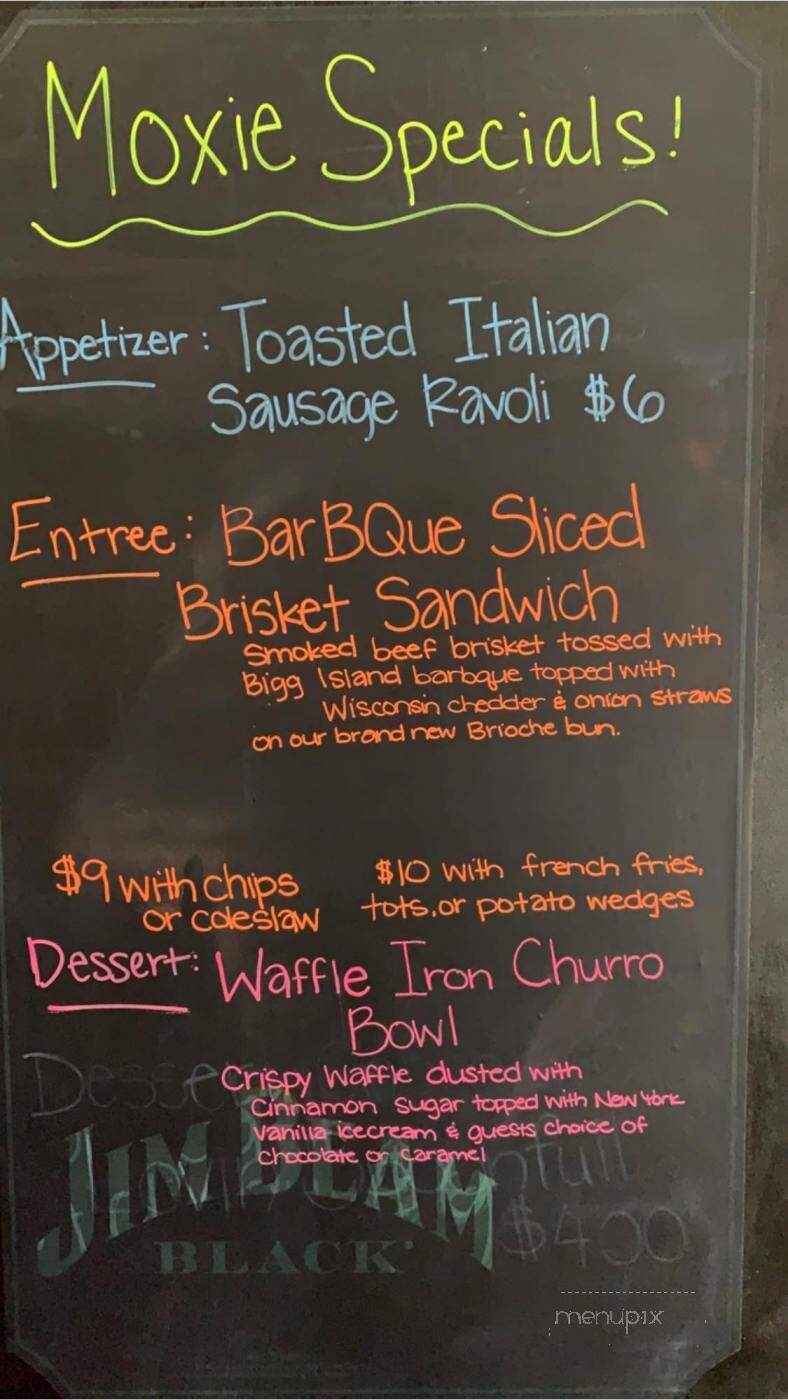 Moxie Specials!
Appetizer: Toasted Italian
Sausage Ravoli $6
Entree: BarBQue Sliced
Brisket Sandwich
Smoked beef brisket tossed with
Bigg Island barbque topped with
Wisconsin chedder & onion straws
on our brand new Brioche bun.
$9 with chips
or coleslaw
$10 with french fries,
tots, or potato wedges
Dessert: Waffle Iron Churro
Bowl
Crispy Waffle dusted with
Cinnamon Sugar topped with New York
Vanilla icecream & guests choice of
Chocolate or Caramel
Desse
JIM BEAM
BLACK
$400
menupix